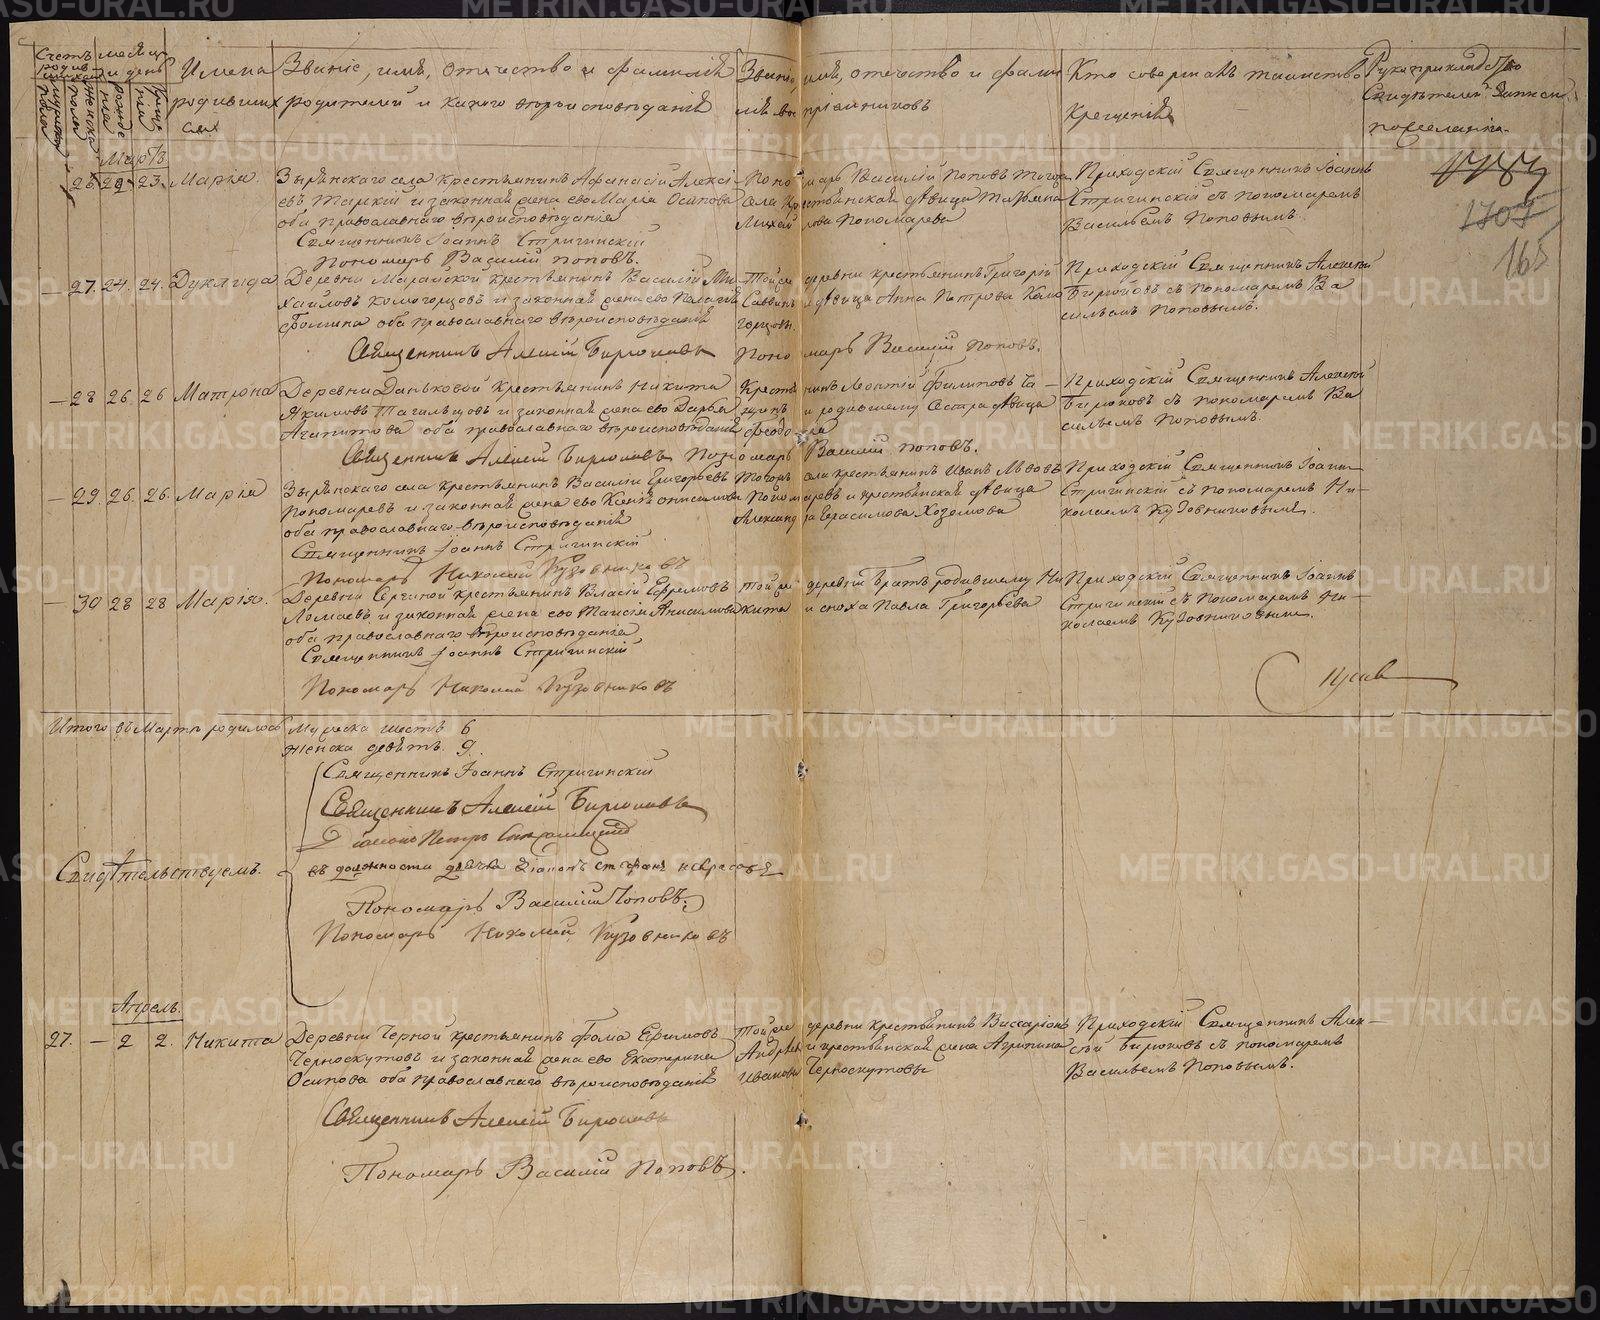 Счетъ родившихся
мужеска пола
женска пола
месяцъ и день
рожденія
крещенія
Имена родившихся
Званіе, имя, отечество и фамилія
родителей и какого вероисповеданія
Званіе, имя, отечество и фамилія воспріемниковъ
Кто совершалъ таинство
Крещенія
Рукоприкладство
Свидетелей записи
по желанію
Мартъ
26. 22. 23. Марія.
Зырянскаго села крестьянинъ Афанасій Алексі-
евъ Тарскій и законная жена его Марья Осипова
оба православнаго вероисповеданія
Священникъ Іоаннъ Стригинскій
Пономарь Василій Поповъ.
Пономарь Василій Поповъ тогоже
села крестьянская девица Татьяна
Михайлова Пономарева
Приходскій Священникъ Іоаннъ
Стригинскій съ пономаремъ
Васильемъ Поповымъ.
1707
165
— 27. 24. 24. Дукклида
Деревни Марайской крестьянинъ Василій Ми-
хаиловъ Комогорцовъ и законная жена его Пелагея
Фомина оба православнаго вероисповеданія
Священникъ Алексій Бирюковъ
Пономарь Василій Поповъ.
Той же деревни крестьянинъ Григорій
Саввинъ и девица Анна Петрова Комо
горцовы.
Приходскій Священникъ Алексей
Бирюковъ съ пономаремъ Ва
сильемъ Поповымъ.
— 28 26. 26 Матрона
Деревни Даньковой крестьянинъ Никита
Якимовъ Тагильцовъ и законная жена его Дарья
Агапитова оба православнаго вероисповеданія
Священникъ Алексій Бирюковъ Пономарь Василій Поповъ.
Крестьянинъ Леонтій Филиповъ Та-
и родившему сестра девица
Феодора
Приходскій Священникъ Алексей
Бирюковъ съ пономаремъ Ва
сильемъ Поповымъ.
— 29. 26. 26. Марія
Зырянскаго села крестьянинъ Василій Григорьевъ
Пономаревъ и законная жена его Ксенья Онисимова
оба православнаго вероисповеданія
Священникъ Іоаннъ Стригинскій
Пономарь Николай Кузовниковъ
Тогожъ села крестьянинъ Иванъ Львовъ
Пономаревъ и крестьянская девица
Александра Герасимова Хоземова
Приходскій Священникъ Іоаннъ
Стригинскій съ пономаремъ Ни-
колаемъ Кузовниковымъ.
— 30 28 28 Марія.
Деревни Сергиной крестьянинъ Власій Ефремовъ
Ломаевъ и законная жена его Таисія Анисимова
оба православнаго вероисповеданія
Священникъ Іоаннъ Стригинскій
Пономарь Николай Кузовниковъ
Той же деревни братъ родившему Ни
кита и сноха Павла Григорьева
Приходскій Священникъ Іоаннъ
Стригинскій съ пономаремъ Ни-
колаемъ Кузовниковымъ.
Итого въ Марте родилось Мужеска шесть 6
женска девять. 9.
Свидетельствуемъ.
Священникъ Іоаннъ Стригинскій
Священникъ Алексій Бирюковъ
Діаконъ Петръ
въ должности дьячка діаконъ Стефанъ Некрасовъ
Пономарь Василій Поповъ.
Пономарь Николай Кузовниковъ
Апрель.
27. — 2 2. Никита
Деревни Черной крестьянинъ Фома Ефимовъ
Черноскутовъ и законная жена его Екатерина
Осипова оба православнаго вероисповеданія
Священникъ Алексій Бирюковъ
Пономарь Василій Поповъ.
Той же деревни крестьянинъ Виссаріонъ
Андреевъ и крестьянская жена Агрипина
Иванова Черноскутовы
Приходскій Священникъ Алек-
сей Бирюковъ съ пономаремъ
Васильемъ Поповымъ.
METRIKI.GASO-URAL.RU